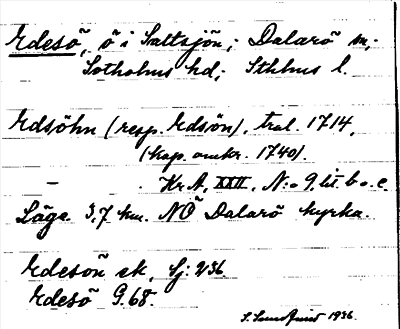 Edesö, ö i Saltsjön; Dalarö sn;
Sotholms hd; Sthlms l.
Edsöhn (resp. Edsön), tral. 1714,
(kop. omkr. 1740).
— Kr A, XXII, N:o 9 lit. b o. c
Läge 3,7 km. NO Dalarö kyrka.
Edesön ek, Sj: 236
Edesö G. 68
1936